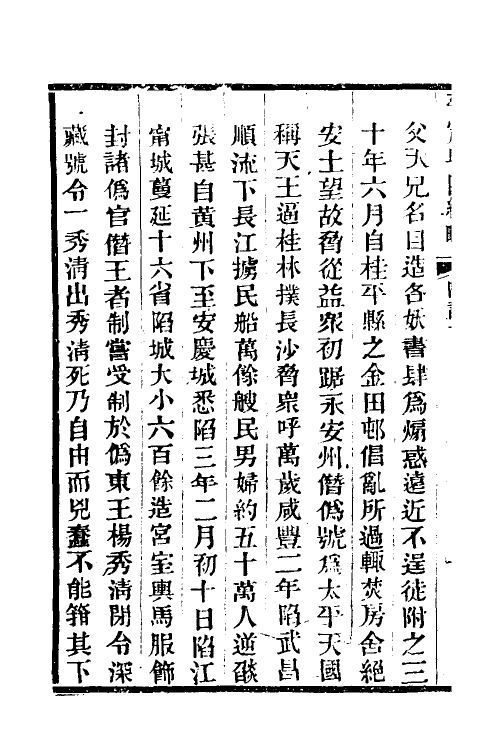 父天兄名目造各妖書肆為煽惑遠近不逞徒附之三
十年六月自桂平縣之金田邨倡亂所過輒焚房舍絕
安土望故脅從益衆初踞永安州僭偽號為太平天國
稱天王逼桂林撲長沙脅衆呼萬歲咸豐二年陷武昌
順流下長江擄民船萬餘艘民男婦約五十萬人逆燄
張甚自黃州下至安慶城悉陷三年二月初十日陷江
甯城蔓延十六省陷城大小六百餘造宮室輿馬服飾
封諸偽官僭王者制嘗受制於偽東王楊秀清閉令深
藏號令一秀清出秀清死乃自由而兇蠢不能箝其下